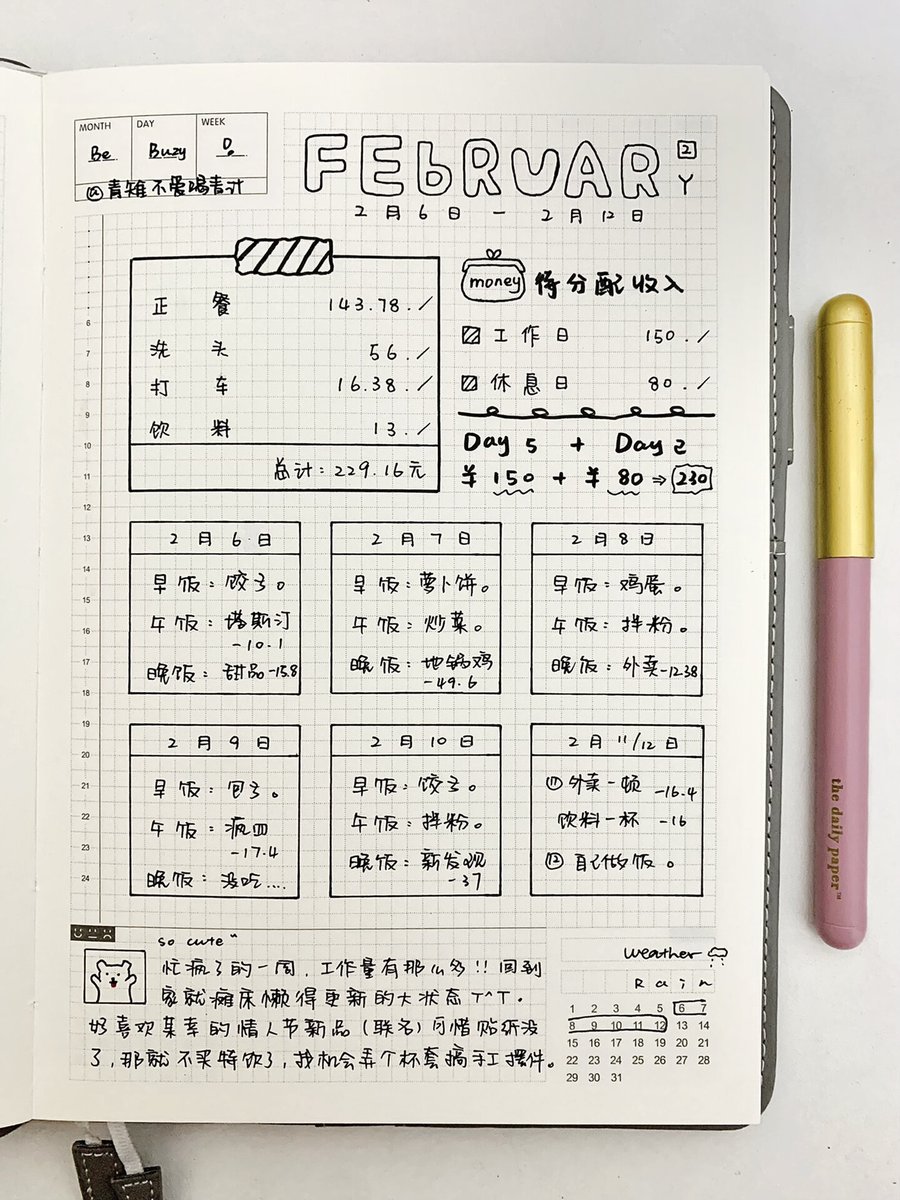 MONTH DAY WEEK
Be Buzy D.
@青雉不爱喝青汁
FEBRUAR
2
Y
2月6日 — 2月12日
正餐 143.78./
洗头 56./
打车 16.38./
饮料 13./
总计:229.16元
money 待分配收入
工作日 150./
休息日 80./
Day 5 + Day 2
¥ 150 + ¥ 80 ⇒ 230
6
7
8
9
10
11
12
13
14
15
16
17
18
19
20
21
22
23
24
2月6日
早饭:饺子。
午饭:塔斯汀
-10.1
晚饭:甜品-15.8
2月7日
早饭:萝卜饼。
午饭:炒菜。
晚饭:地锅鸡
-49.6
2月8日
早饭:鸡蛋。
午饭:拌粉。
晚饭:外卖-12.38
2月9日
早饭:包子。
午饭:疯四
-17.4
晚饭:没吃....
2月10日
早饭:饺子。
午饭:拌粉。
晚饭:新发现
-37
2月11/12日
⑪外卖一顿 -16.4
饮料一杯 -16
⑫自己做饭。
so cute
忙疯了的一周,工作量有那么多!!回到
家就瘫床懒得更新的大状态T^T.
好喜欢某幸的情人节新品(联名)可惜贴纸没
了,那就不买特饮了,找机会弄个杯套搞手工摆件。
weather
Rain
1 2 3 4 5 6 7
8 9 10 11 12 13 14
15 16 17 18 19 20 21
22 23 24 25 26 27 28
29 30 31
the daily paper™